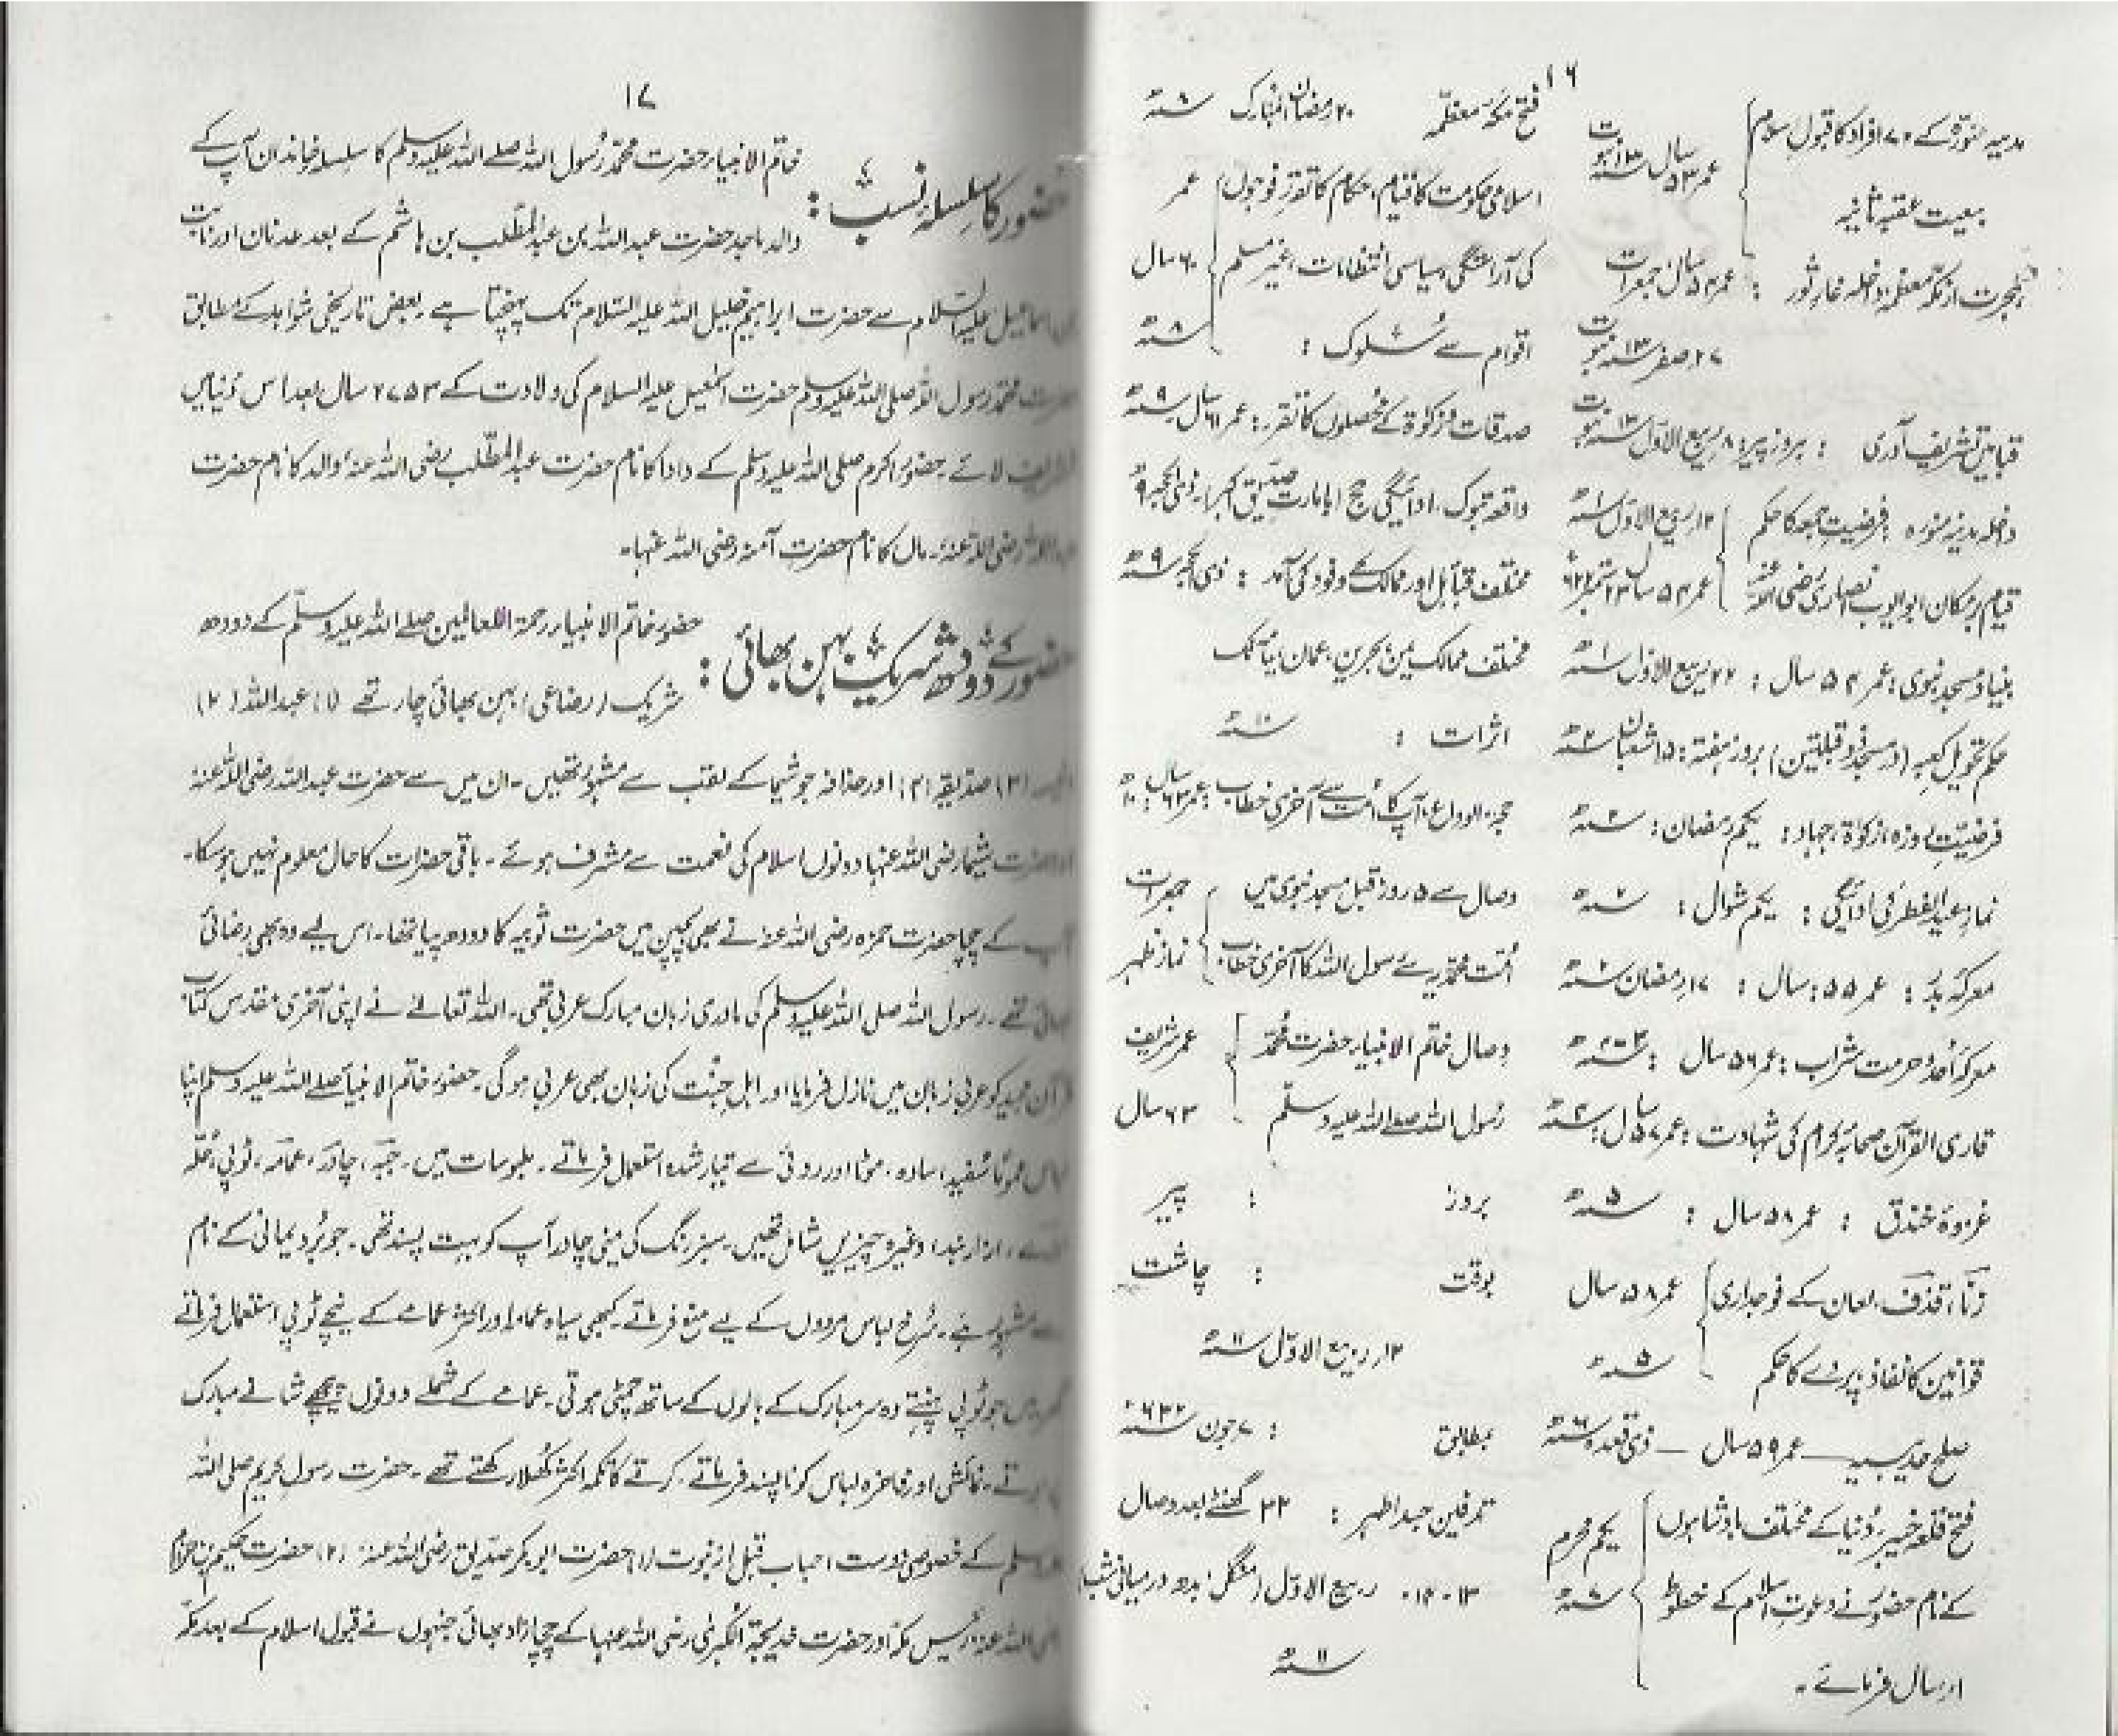 ۱۶
مدینہ منورہ کے ۷۰ افراد کا قبول اسلام
بیعت عقبہ ثانیہ
عمر ۵۳ سال ۱۳ نبوت
ہجرت از مکہ معظمہ، داخلہ غار ثور : عمر ۵۳ سال جمعرات
۲۷ صفر ۱۳ نبوت
قبا میں تشریف آوری : بروز پیر، ۸ ربیع الاول ۱۳ نبوت
داخلہ مدینہ منورہ، فرضیت جمعہ کا حکم ۱۲ ربیع الاول ۱ھ
قیام بر مکان ابو ایوب انصاری رضی اللہ عنہ عمر ۵۴ سال
بنیاد مسجد نبوی : عمر ۵۴ سال : ۲۲ ربیع الاول ۱ھ
حکم تحویل کعبہ (در مسجد ذو قبلتین) بروز ہفتہ : ۱۵ شعبان ۲ھ
فرضیت روزہ، زکوٰۃ، جہاد : یکم رمضان : ۲ھ
نماز عید الفطر کی ادائیگی : یکم شوال : ۲ھ
معرکہ بدر : عمر ۵۵ سال : ۱۷ رمضان ۲ھ
معرکہ اُحد و حرمت شراب : عمر ۵۶ سال : ۳ھ
قاری القرآن صحابہ کرام کی شہادت : عمر ۵۷ سال : ۴ھ
غزوہ خندق : عمر ۵۸ سال : ۵ھ
زنا، قذف، لعان کے فوجداری عمر ۵۸ سال
قوانین کا نفاذ، پردے کا حکم ۵ھ
صلح حدیبیہ — عمر ۵۹ سال — ذی قعدہ ۶ھ
فتح قلعہ خیبر، دُنیا کے مختلف بادشاہوں یکم محرم
کے نام حضور نے دعوت اسلام کے خطوط ۷ھ
ارسال فرمائے۔
فتح مکہ معظمہ ۲۰ رمضان المبارک ۸ھ
اسلامی حکومت کا قیام، حکام کا تقرر، فوجوں عمر
کی آراستگی، سیاسی انتظامات، غیر مسلم ۶۰ سال
اقوام سے سُلوک : ۸ھ
صدقات و زکوٰۃ کے محصلوں کا تقرر : عمر ۶۱ سال ۹ھ
واقعہ تبوک، ادائیگی حج با امارت صدیق اکبر، ذی الحجہ ۹ھ
مختلف قبائل اور ممالک کے وفود کی آمد : ذی الحجہ ۹ھ
مختلف ممالک یمن، بحرین، عمان، یمامہ تک
اثرات : ۱۰ھ
حجۃ الوداع، آپ کا اُمت سے آخری خطاب : عمر ۶۲ سال : ۱۰ھ
وصال سے ۵ روز قبل مسجد نبوی میں جمعرات
اُمت محمدیہ سے رسول اللہ کا آخری خطاب نماز ظہر
وصال خاتم الانبیاء حضرت محمد عمر شریف
رسول اللہ صلے اللہ علیہ وسلم ۶۳ سال
بروز : پیر
بوقت : چاشت
۱۲ ربیع الاول ۱۱ھ
مطابق : ۷ جون ۶۳۲ء
تدفین جسد اطہر : ۳۲ گھنٹے بعد وصال
۱۳-۱۴ ربیع الاول (منگل، بدھ درمیانی شب)
۱۱ھ
۱۷
حضور کا سلسلہ نسب :
خاتم الانبیاء حضرت محمد رسول اللہ صلے اللہ علیہ وسلم کا سلسلہ خاندان آپ کے
والد ماجد حضرت عبد اللہ بن عبد المطلب بن ہاشم کے بعد عدنان اور نابت
بن اسماعیل علیہ السلام سے حضرت ابراہیم خلیل اللہ علیہ السلام تک پہنچتا ہے۔ بعض تاریخی شواہد کے مطابق
حضرت محمد رسول اللہ صلی اللہ علیہ وسلم حضرت اسمٰعیل علیہ السلام کی ولادت کے ۲۷۵۳ سال بعد اس دُنیا میں
تشریف لائے۔ حضور اکرم صلی اللہ علیہ وسلم کے دادا کا نام حضرت عبد المطلب رضی اللہ عنہ، والد کا نام حضرت
عبد اللہ رضی اللہ عنہ۔ ماں کا نام حضرت آمنہ رضی اللہ عنہا۔
حضور کے دودھ شریک بہن بھائی :
حضور خاتم الانبیاء رحمۃ اللعالمین صلے اللہ علیہ وسلم کے دودھ
شریک (رضاعی) بہن بھائی چار تھے (۱) عبد اللہ (۲)
(۳) صدیقہ (۴) اور حذافہ جو شیما کے لقب سے مشہور تھیں۔ ان میں سے حضرت عبد اللہ رضی اللہ عنہ
اور حضرت شیما رضی اللہ عنہا دونوں اسلام کی نعمت سے مشرف ہوئے۔ باقی حضرات کا حال معلوم نہیں ہوسکا۔
آپ کے چچا حضرت حمزہ رضی اللہ عنہ نے بھی بچپن میں حضرت ثوبیہ کا دودھ پیا تھا۔ اس لیے وہ بھی رضاعی
بھائی تھے۔ رسول اللہ صلی اللہ علیہ وسلم کی مادری زبان مبارک عربی تھی۔ اللہ تعالےٰ نے اپنی آخری مقدس کتاب
قرآن مجید کو عربی زبان میں نازل فرمایا اور اہل جنت کی زبان بھی عربی ہوگی۔ حضور خاتم الانبیاء صلے اللہ علیہ وسلم اپنا
لباس عموماً سفید، سادہ، موٹا اور روئی سے تیار شدہ استعمال فرماتے۔ ملبوسات میں۔ جبہ، چادر، عمامہ، ٹوپی، حُلہ
ازار بند، وغیرہ چیزیں شامل تھیں۔ سبز رنگ کی یمنی چادر آپ کو بہت پسند تھی۔ جو بُرد یمانی کے نام
سے مشہور ہے۔ سُرخ لباس مردوں کے لیے منع فرماتے۔ کبھی سیاہ عمامہ اور اکثر عمامے کے نیچے ٹوپی استعمال فرماتے
گھر میں جو ٹوپی پہنتے وہ سر مبارک کے بالوں کے ساتھ چمٹی ہوتی۔ عمامے کے شملے دونوں پیچھے شانے مبارک
ہوتے۔ نمائشی اور فاخرہ لباس کو ناپسند فرماتے۔ کرتے کا تکمہ اکثر کُھلا رکھتے تھے۔ حضرت رسول کریم صلی اللہ
علیہ وسلم کے خصوصی دوست احباب قبل از نبوت (۱) حضرت ابوبکر صدیق رضی اللہ عنہ (۲) حضرت حکیم بن حزام
رضی اللہ عنہ رئیس مکہ اور حضرت خدیجۃ الکبریٰ رضی اللہ عنہا کے چچا زاد بھائی جنہوں نے قبول اسلام کے بعد مکہ